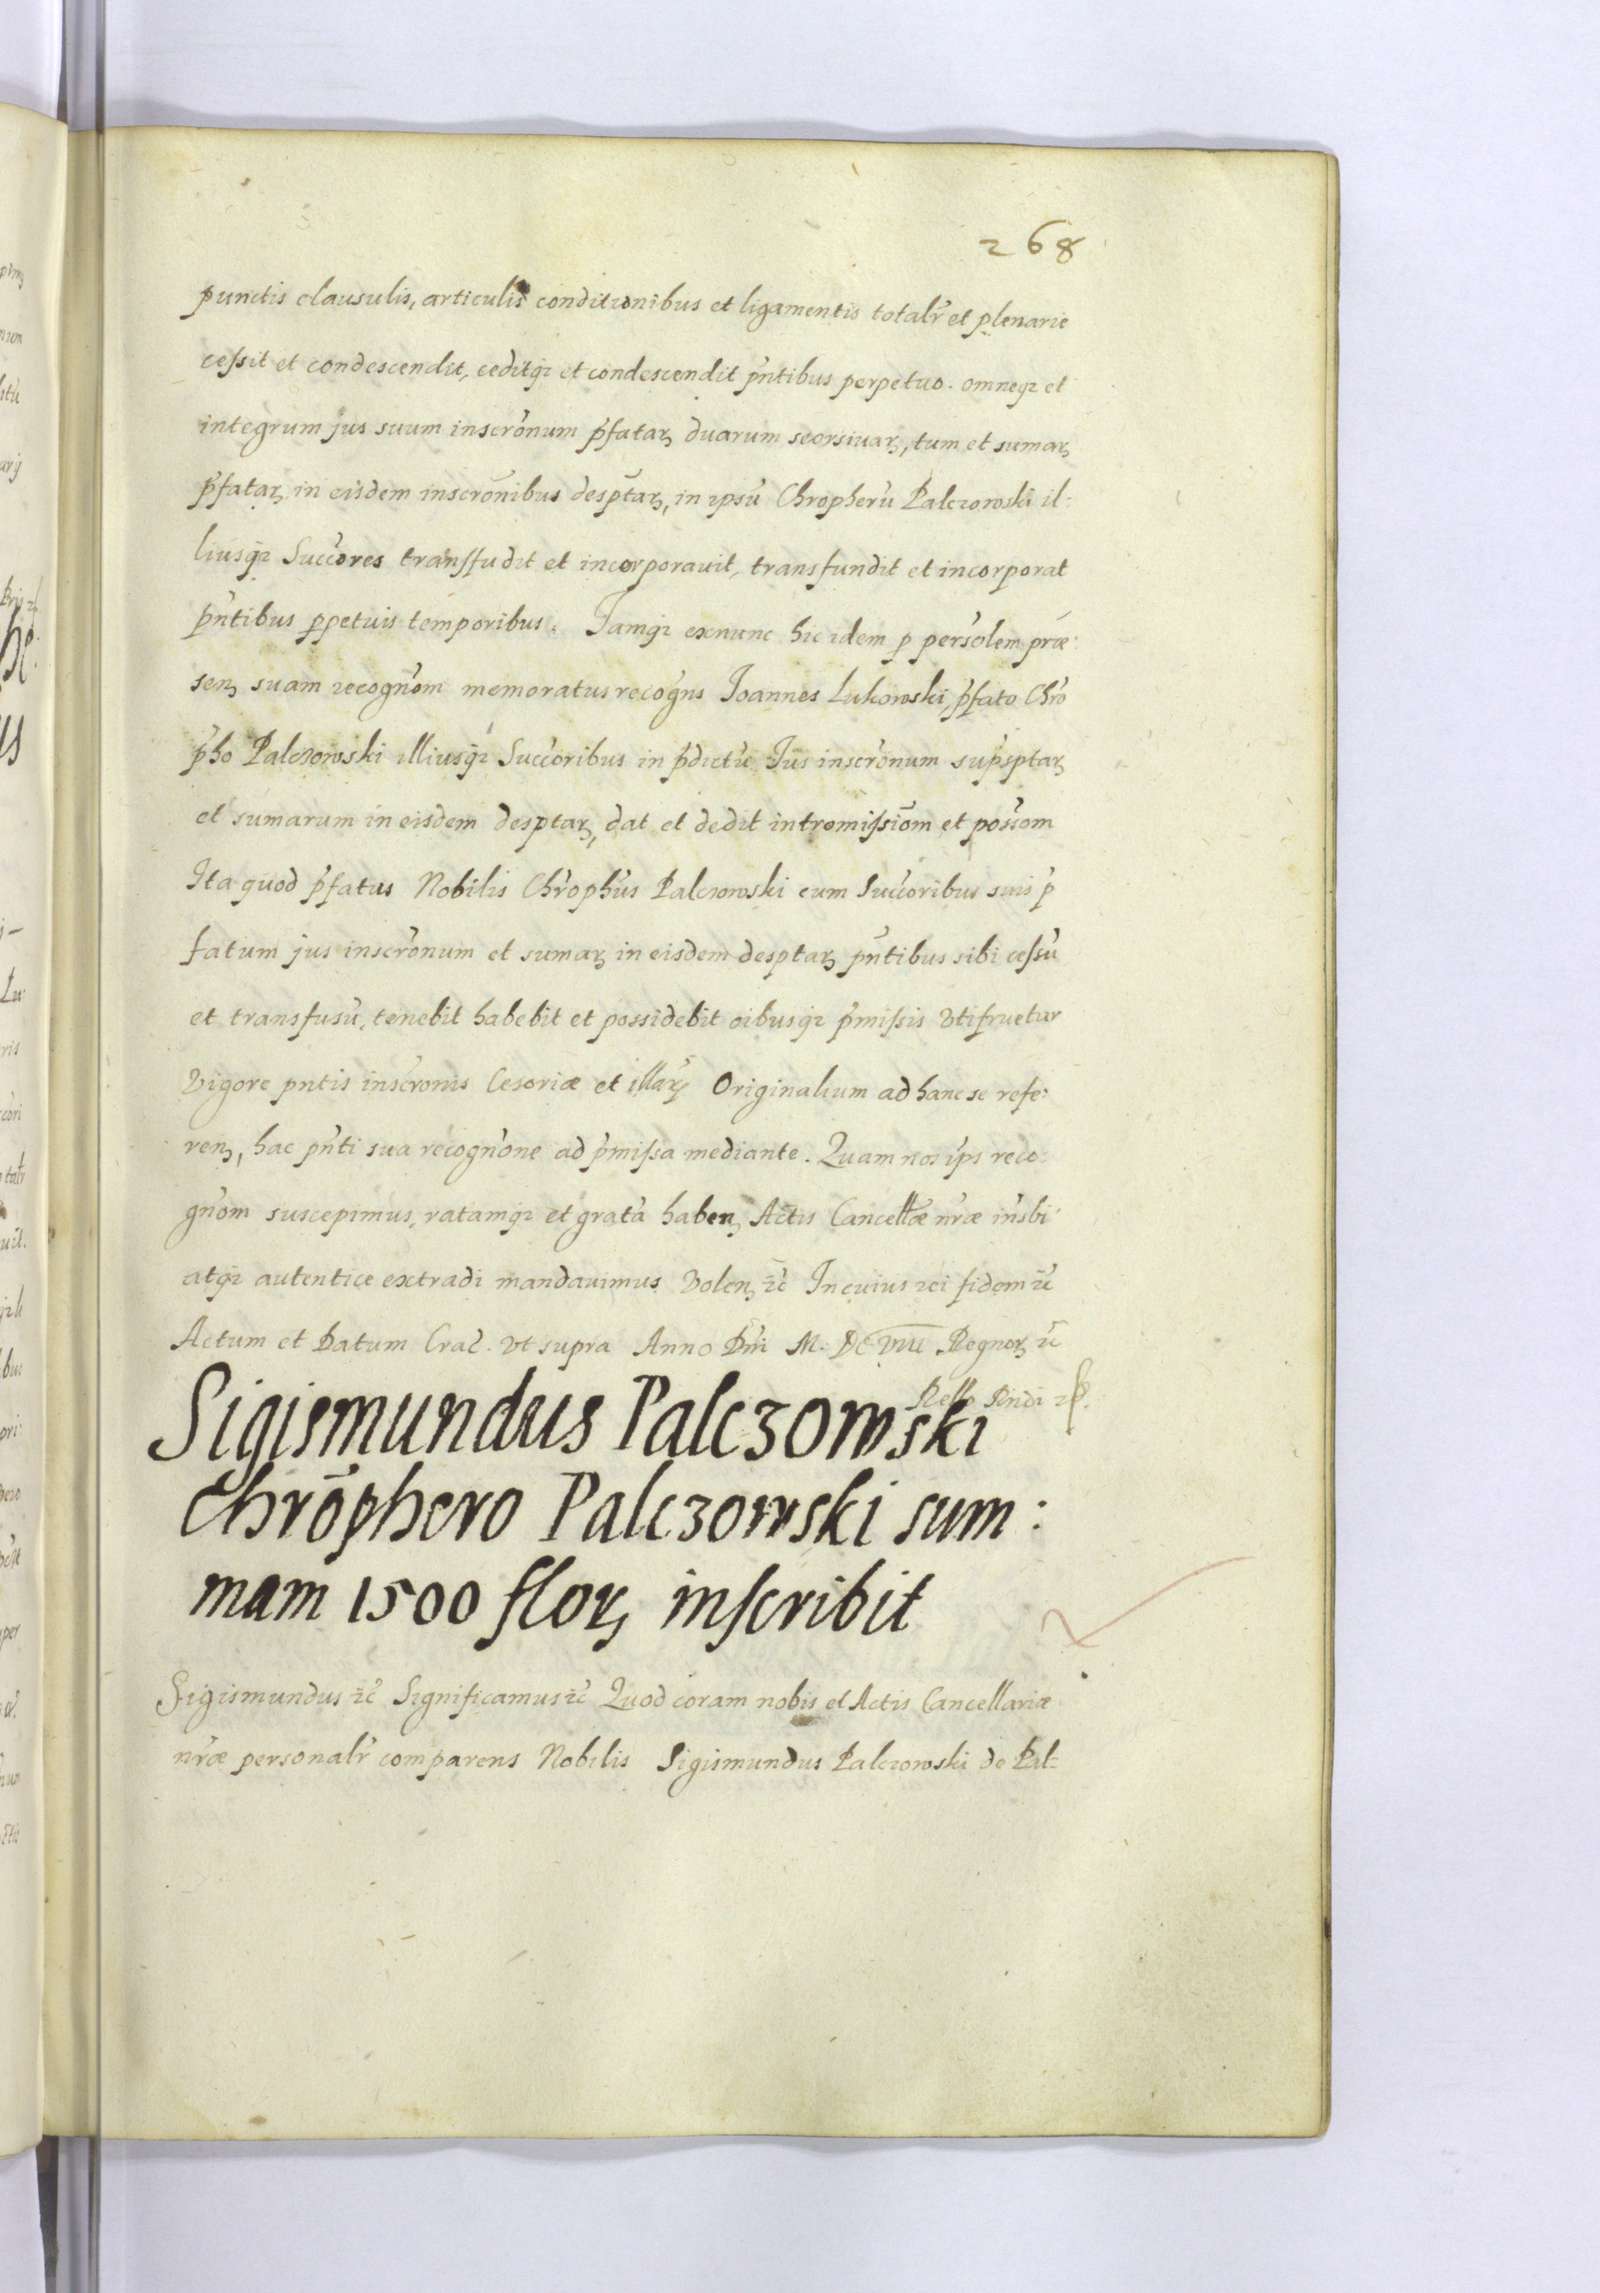 268
punctis clausulis, articulis conditionibus et ligamentis totalr̃ et plenarie
cessit et condescendit, ceditq₃ et condescendit pñtibus perpetuo. omneq₃ et
integrum jus suum inscrõnum p̃fataꝝ duarum seorsivaꝝ, tum et sumaꝝ
p̃fataꝝ in eisdem inscrõnibus desp̃taꝝ, in ipsũ Chropherũ Palczowski il:
liusq₃ Succ̃ores transfudit et incorporavit, transfundit et incorporat
pñtibus ꝑpetuis temporibus. Jamq₃ exnunc hic idem ꝑ pers̃olem præ:
senꝫ suam recogñom memoratus recogñs Joannes Lukowski, p̃fato Chrõ
p̃ho Palczowski illiusq₃ Succ̃oribus in p̃dictũ Jus inscrõnum sup̃sptaꝝ
et sumarum in eisdem desptaꝝ, dat et dedit intromissiõm et poss̃om
Ita quod p̃fatus Nobilis Chr̃oph̃us Palczowski cum Succ̃oribus suis p̃
fatum jus inscrõnum et sumaꝝ in eisdem desptaꝝ pñtibus sibi cessũ
et transfusũ, tenebit habebit et possidebit oibusq₃ p̃missis Vtifruetur
Vigore pntis inscrõnis Cesoriæ et illaꝝ Originalium ad hanc se refe:
renꝫ, hac pñti sua recogñone ad p̃missa mediante. Quam nos ip̃s reco:
gñom suscepimus, ratamq₃ et gratã habenꝫ Actis Cancell̃æ nr̃æ iñsbi
atq₃ autentice extradi mandavimus Volenꝫ ꝛc̃ In cuius rei fidem ꝛc̃
Actum et Datum Crac̃. vt supra Anno Dñi M. DC VIII Regnoꝝ ꝛc̃
Sigismundus Palczowski
Chrõphero Palczowski sum:
mam 1500 floꝝ inscribit
Sigismundus ꝛc̃ Significamus ꝛc̃ Quod coram nobis et Actis Cancellariæ
nr̃æ personalr̃ comparens Nobilis Sigismundus Palczowski de Pal=